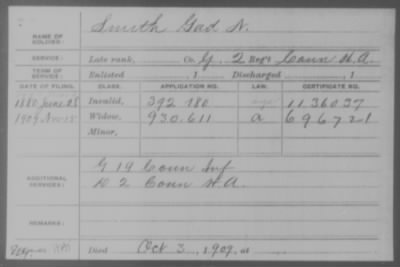 NAME OF SOLDIER: Smith Gad N.
SERVICE: Late rank, Co. G, 2 Reg't Conn H.A.
TERM OF SERVICE: Enlisted , 1 Discharged , 1
DATE OF FILING. CLASS. APPLICATION NO. LAW. CERTIFICATE NO.
1880 June 28 Invalid, 392 180 1136037
1909 Nov 15 Widow, 930.611 a 696721
Minor,
ADDITIONAL SERVICES: G 19 Conn Inf
D 2 Conn H.A.
REMARKS:
Died Oct 3, 1909, at